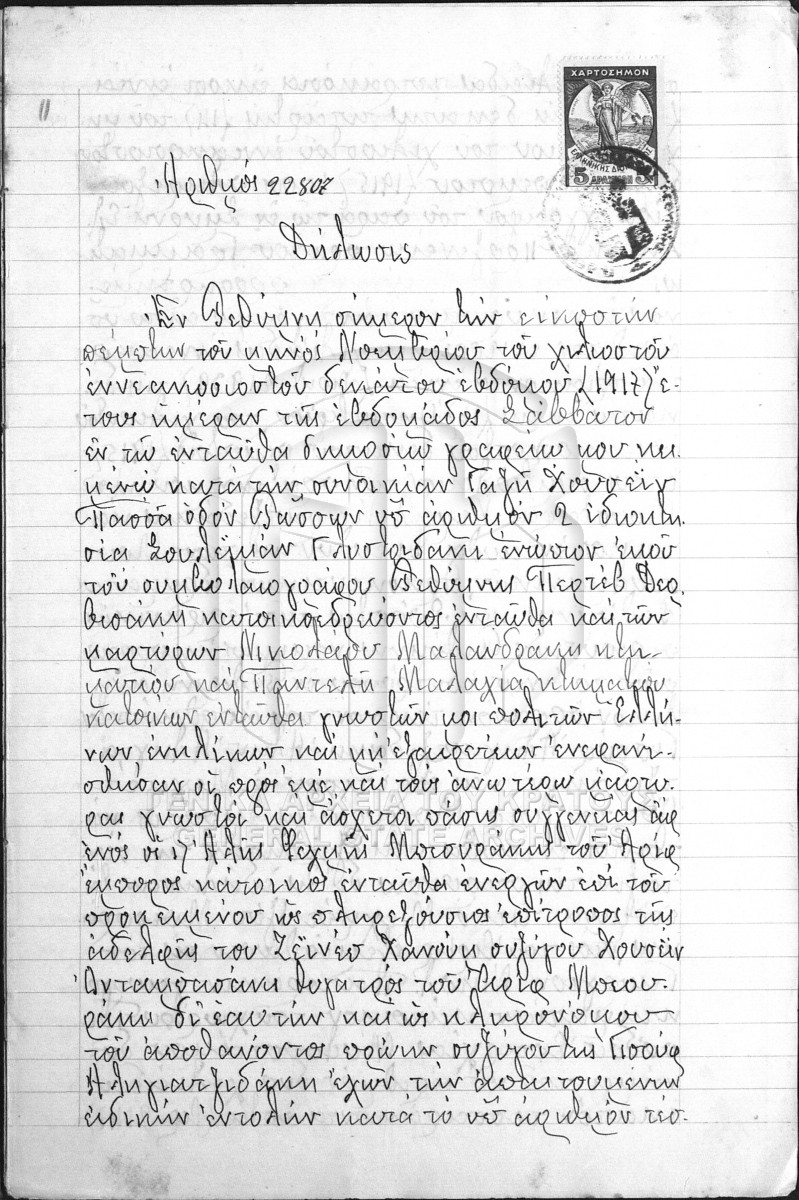 ΧΑΡΤΟΣΗΜΟΝ
5 ΔΡΑΧΜΑΙ 5
Ἀριθμός 22807
Δήλωσις
Ἐν Ρεθύμνῃ σήμερον τὴν εἰκοστὴν
πέμπτην τοῦ μηνός Νοεμβρίου τοῦ χιλιοστοῦ
ἐννεακοσιοστοῦ δεκάτου ἑβδόμου (1917) ἔ-
τους ἡμέραν τῆς ἑβδομάδος Σάββατον
ἐν τῷ ἐνταῦθα δημοσίῳ γραφείῳ μου κει-
μένῳ κατά τὴν συνοικίαν Γαζῆ Χουσεΐν
Πασσᾶ ὁδόν Βάσσων ὑπ' ἀριθμόν 2 ἰδιοκτη-
σία Σουλεϊμάν Γλυστιδάκη ἐνώπιον ἐμοῦ
τοῦ συμβολαιογράφου Ρεθύμνης Περτέβ Δερ-
βισάκη κατοικοεδρεύοντος ἐνταῦθα καί τῶν
μαρτύρων Νικολάου Μαλανδράκη κτη-
ματίου καί Παντελῆ Μαλαχία κτηματίου
κατοίκων ἐνταῦθα γνωστῶν μοι πολιτῶν Ἑλλή-
νων ἐνηλίκων καί μή ἐξαιρετέων ἐνεφανί-
σθησαν οἱ πρός ἐμέ καί τούς ἀνωτέρω μάρτυ-
ρας γνωστοί καί ἄσχετοι πάσης συγγενείας ἀφ'
ἑνός ὁ Ἀλῆς Φεχμῆς Μπουράκης τοῦ Ἀρίφ
ἔμπορος κάτοικος ἐνταῦθα ἐνεργῶν ἐπί τοῦ
προκειμένου ὡς πληρεξούσιος ἐπίτροπος τῆς
ἀδελφῆς του Ζεϊνέπ Χανούμ συζύγου Χουσεΐν
θυγατρός τοῦ Ἀρίφ Μπου-
ράκη δι' ἑαυτήν καί ὡς κληρονόμου
τοῦ ἀποθανόντος πρώην συζύγου της Γιουσούφ
Ἀληγιατζιδάκη ἔχων τὴν ἀπαιτουμένην
εἰδικήν ἐντολήν κατά τό ὑπ' ἀριθμόν τεσ-
ΓΕΝΙΚΑ ΑΡΧΕΙΑ ΤΟΥ ΚΡΑΤΟΥΣ
GENERAL STATE ARCHIVES